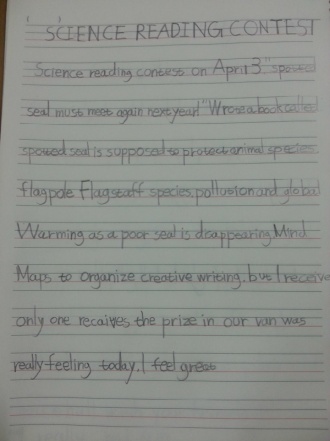 SCIENCE READING CONTEST
Science reading contest on April 3 "spotted
seal must meet again next year!" Wrote a book called
spotted seal is supposed to protect animal species.
flagpole Flagstaff species, pollution and global
Warming as a poor seal is disappearing Mind
Maps to organize creative writing. but I receive
only one recaives the prize in our van was
really feeling today. I feel great